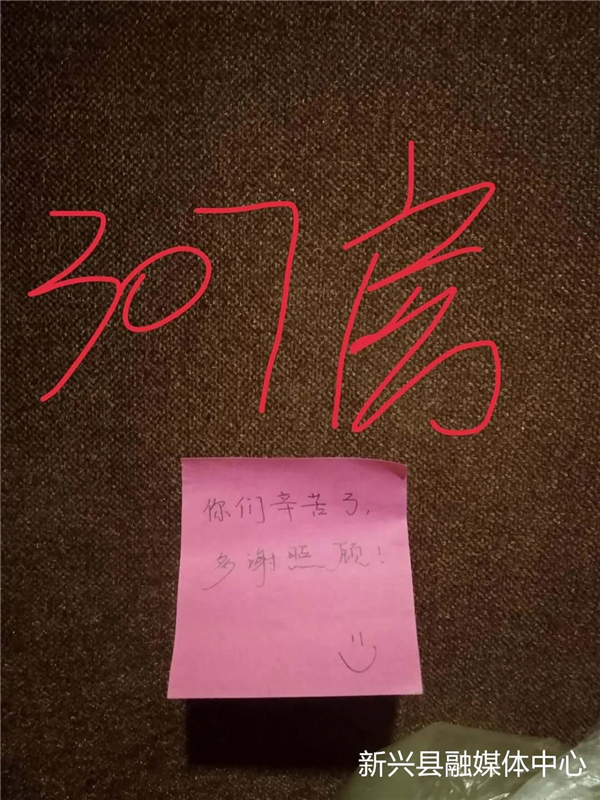 307房
你们辛苦了,
多谢照顾!
新兴县融媒体中心